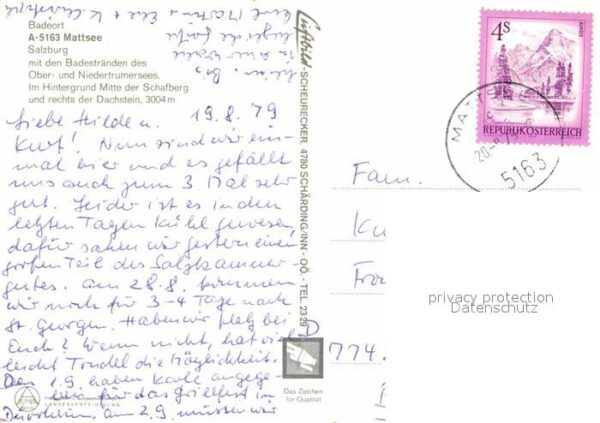 Badeort
A-5163 Mattsee
Salzburg
mit den Badestränden des
Ober- und Niedertrumersees.
Im Hintergrund Mitte der Schafberg
und rechts der Dachstein, 3004 m
19.8.79
Liebe Hilde u.
Kurt! Nun sind wir ein-
mal hier und es gefällt
uns auch zum 3. Mal sehr
gut. Leider ist es in den
letzten Tagen kühl gewesen,
dafür sahen wir gestern einen
großen Teil des Salzkammer-
gutes. Am 28.8. kommen
wir noch für 3-4 Tage nach
St. Georgen. Haben wir Platz bei
Euch? Wenn nicht, hat viel-
leicht Trudel die Möglichkeit.
Den 1.9. haben Karle angege-
ben für das Grillfest in
am 2.9. müssen wir
Luftbild-SCHEURECKER, 4780 SCHÄRDING/INN - OÖ. - TEL. 2329
LANDESVERTEIDIGUNG
Das Zeichen
für Qualität
4S
REPUBLIK ÖSTERREICH
5163
Fam.
Ku
D
774.
privacy protection
Datenschutz